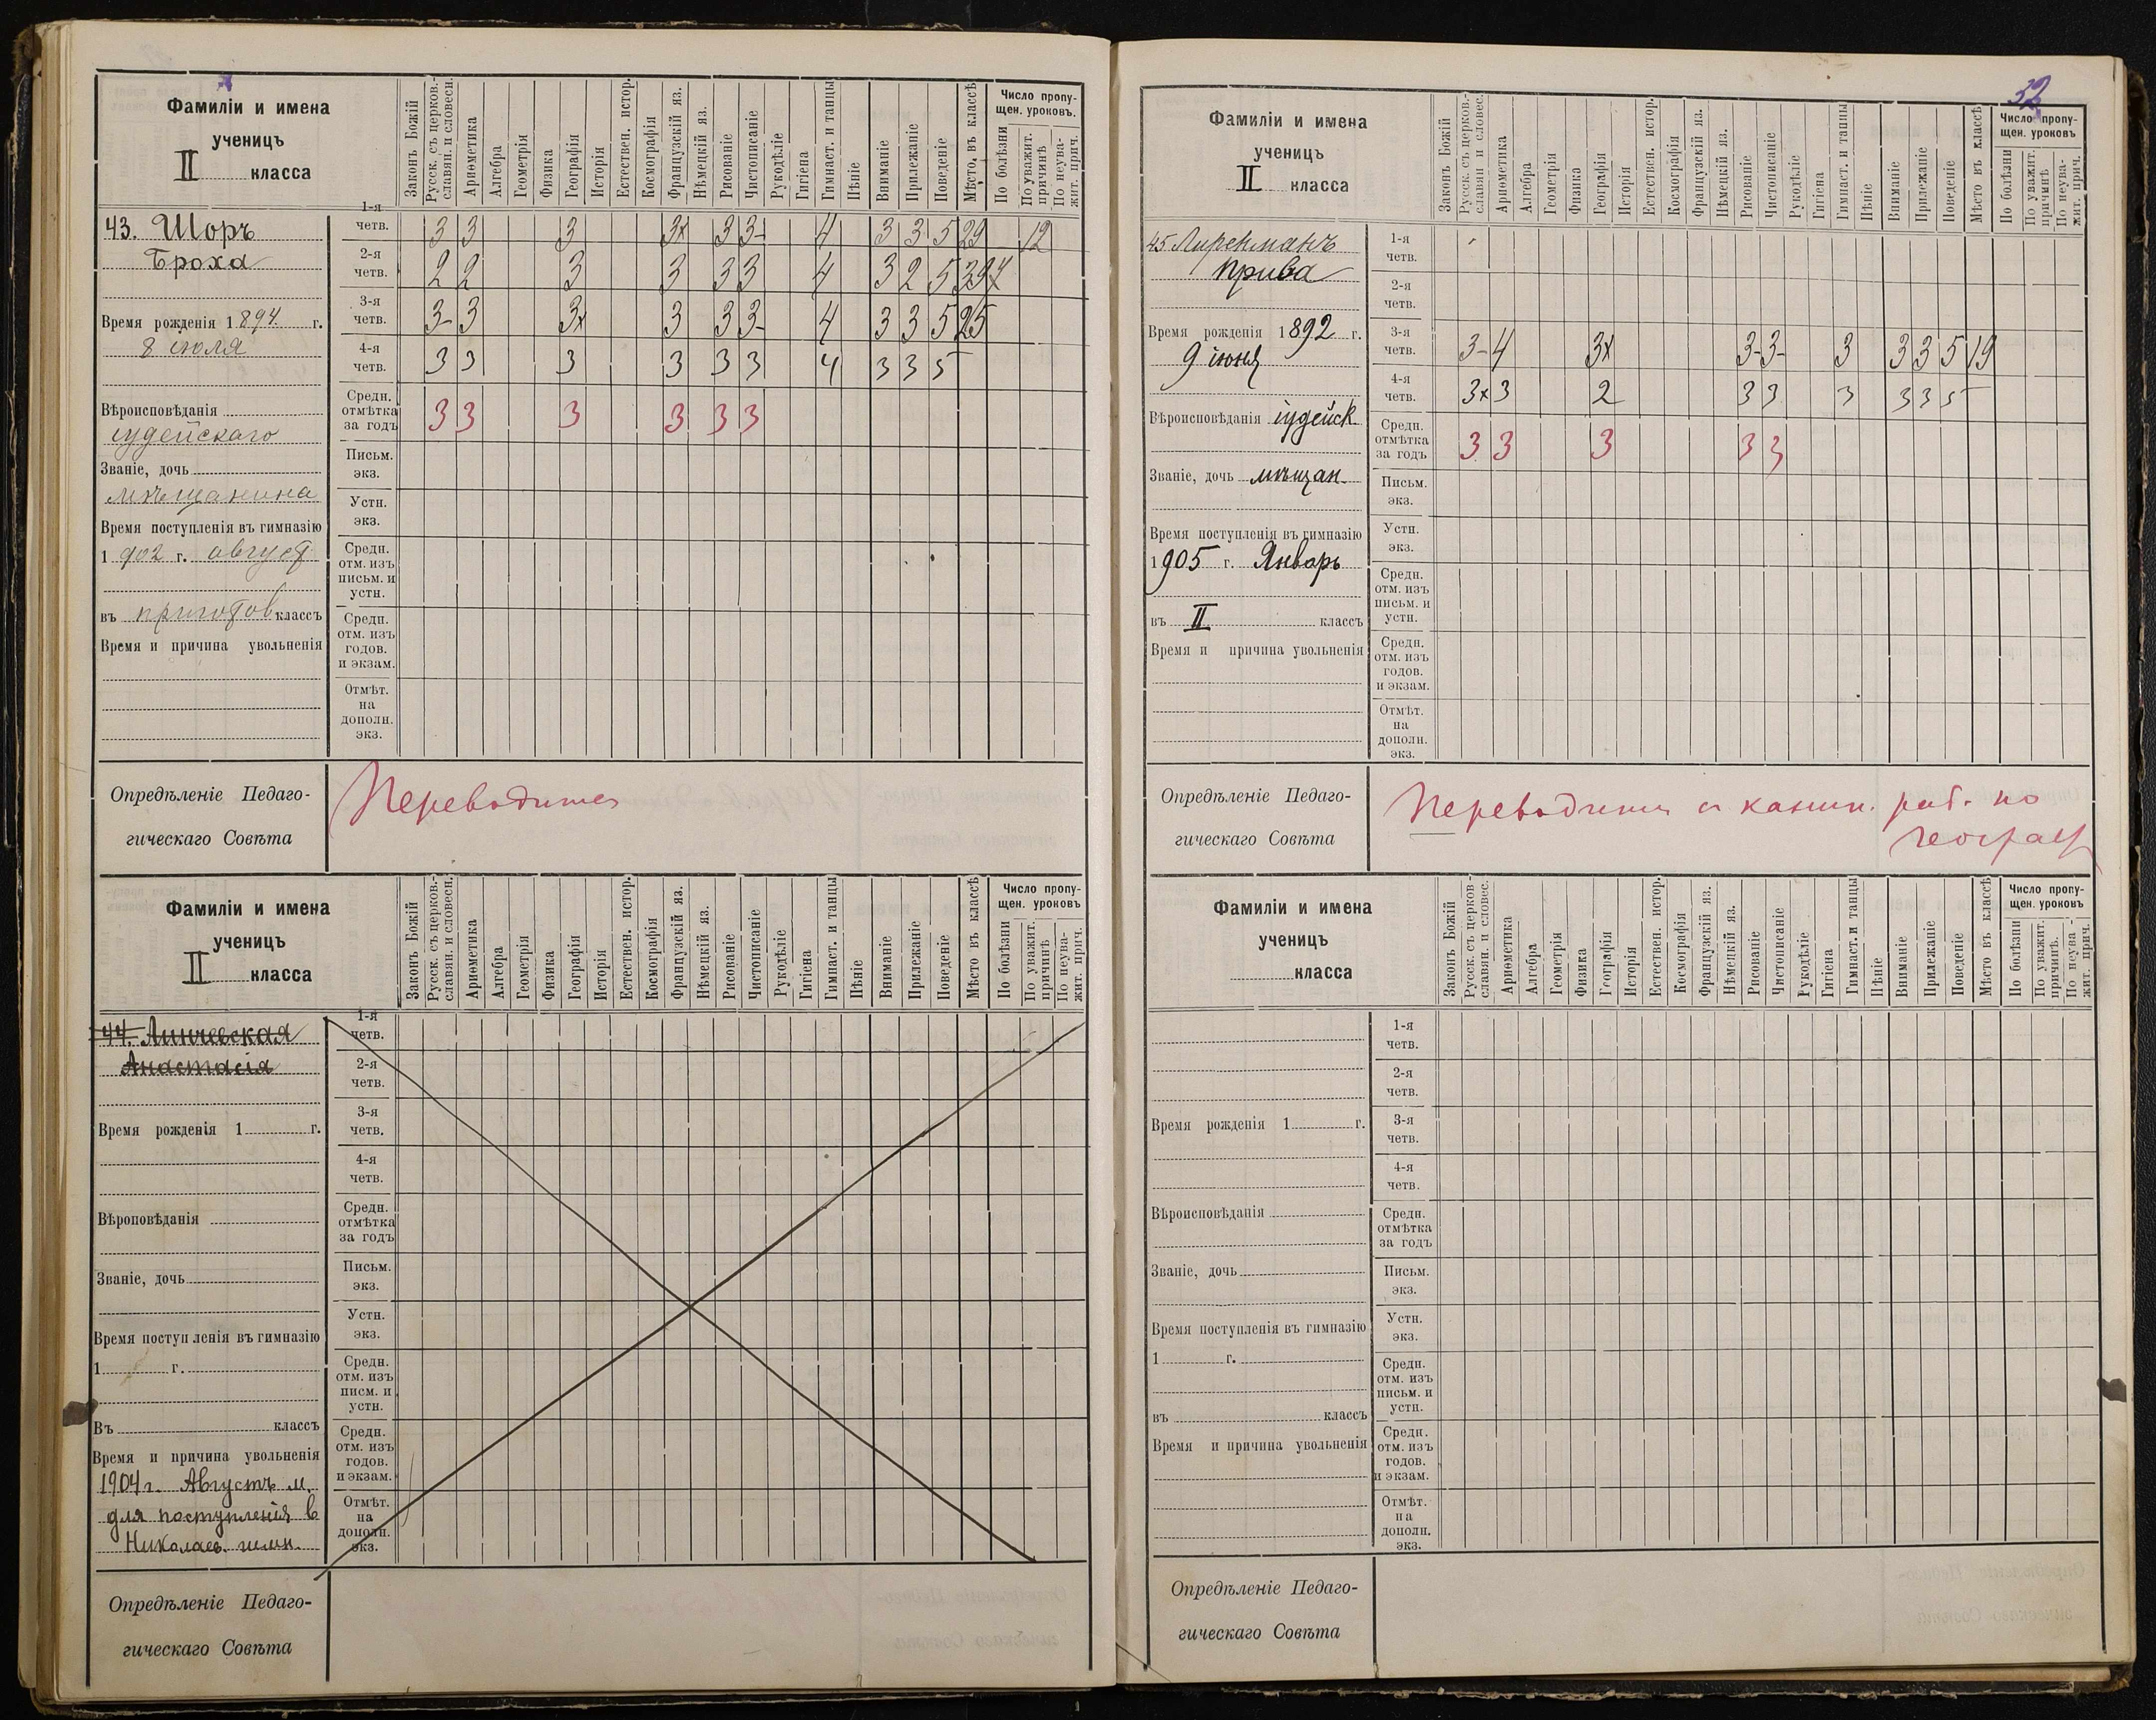 Фамиліи и имена
ученицъ
II класса
Законъ Божій
Русск. съ церков.-
славян. и словесн.
Ариѳметика
Алгебра
Геометрія
Физика
Географія
Исторія
Естествен. истор.
Космографія
Французскій яз.
Нѣмецкій яз.
Рисованіе
Чистописаніе
Рукодѣліе
Гигіена
Гимнаст. и танцы
Пѣніе
Вниманіе
Прилежаніе
Поведеніе
Мѣсто въ классѣ
Число пропу-
щен. уроковъ.
По болѣзни
По уважит.
причинѣ
По неува-
жит. прич.
43. Шоръ
Броха
Время рожденія 1894 г.
8 іюля
Вѣроисповѣданія
іудейскаго
Званіе, дочь
мѣщанина
Время поступленія въ гимназію
1 902 г. август
въ приготов классъ
Время и причина увольненія
1-я четв. 3 3 3 3x 3 3- 4 3 3 5 29 12
2-я четв. 2 2 3 3 3 3 4 3 2 5 39
3-я четв. 3- 3 3x 3 3 3- 4 3 3 5 25
4-я четв. 3 3 3 3 3 3 4 3 3 5
Средн. отмѣтка за годъ 3 3 3 3 3 3
Письм. экз.
Устн. экз.
Средн. отм. изъ письм. и устн.
Средн. отм. изъ годов. и экзам.
Отмѣт. на дополн. экз.
Опредѣленіе Педаго-
гическаго Совѣта
Переводится
Фамиліи и имена
ученицъ
II класса
Законъ Божій
Русск. съ церков.-
славян. и словесн.
Ариѳметика
Алгебра
Геометрія
Физика
Географія
Исторія
Естествен. истор.
Космографія
Французскій яз.
Нѣмецкій яз.
Рисованіе
Чистописаніе
Рукодѣліе
Гигіена
Гимнаст. и танцы
Пѣніе
Вниманіе
Прилежаніе
Поведеніе
Мѣсто въ классѣ
Число пропу-
щен. уроковъ
По болѣзни
По уважит.
причинѣ
По неува-
жит. прич.
44.
Анастасія
Время рожденія 1 г.
Вѣроповѣданія
Званіе, дочь
Время поступленія въ гимназію
1 г.
Въ классъ
Время и причина увольненія
1904 г. Августъ м.
для поступленія в
Николаев. гимн.
1-я четв.
2-я четв.
3-я четв.
4-я четв.
Средн. отмѣтка за годъ
Письм. экз.
Устн. экз.
Средн. отм. изъ писм. и устн.
Средн. отм. изъ годов. и экзам.
Отмѣт. на дополн. экз.
Опредѣленіе Педаго-
гическаго Совѣта
32
Фамиліи и имена
ученицъ
II класса
Законъ Божій
Русск. съ церков.-
славян и словес.
Ариѳметика
Алгебра
Геометрія
Физика
Географія
Исторія
Естествен. истор.
Космографія
Французскій яз.
Нѣмецкій яз.
Рисованіе
Чистописаніе
Рукодѣліе
Гигіена
Гимнаст. и танцы
Пѣніе
Вниманіе
Прилежаніе
Поведеніе
Мѣсто въ классѣ
Число пропу-
щен. уроковъ
По болѣзни
По уважит.
причинѣ
По неува-
жит. прич.
45
Прива
Время рожденія 1892 г.
9 іюня
Вѣроисповѣданія іудейск
Званіе, дочь мѣщан
Время поступленія въ гимназію
1905 г. Январь
въ II классъ
Время и причина увольненія
1-я четв.
2-я четв.
3-я четв. 3- 4 3x 3- 3- 3 3 3 5 19
4-я четв. 3x 3 2 3 3 3 3 3 5
Средн. отмѣтка за годъ 3 3 3 3 3
Письм. экз.
Устн. экз.
Средн. отм. изъ письм. и устн.
Средн. отм. изъ годов. и экзам.
Отмѣт. на дополн. экз.
Опредѣленіе Педаго-
гическаго Совѣта
Переводится с каник. раб. по
географ
Фамиліи и имена
ученицъ
класса
Законъ Божій
Русск. съ церков-
славян. и словес.
Ариѳметика
Алгебра
Геометрія
Физика
Географія
Исторія
Естествен. истор.
Космографія
Французскій яз.
Нѣмецкій яз.
Рисованіе
Чистописаніе
Рукодѣліе
Гигіена
Гимнаст. и танцы
Пѣніе
Вниманіе
Прилежаніе
Поведеніе
Мѣсто въ классѣ
Число пропу-
щен. уроковъ
По болѣзни
По уважит.
причинѣ.
По неува-
жит. прич.
Время рожденія 1 г.
Вѣроисповѣданія
Званіе, дочь
Время поступленія въ гимназію
1 г.
въ классъ
Время и причина увольненія
1-я четв.
2-я четв.
3-я четв.
4-я четв.
Средн. отмѣтка за годъ
Письм. экз.
Устн. экз.
Средн. отм. изъ письм. и устн.
Средн. отм. изъ годов. и экзам.
Отмѣт. на дополн. экз.
Опредѣленіе Педаго-
гическаго Совѣта